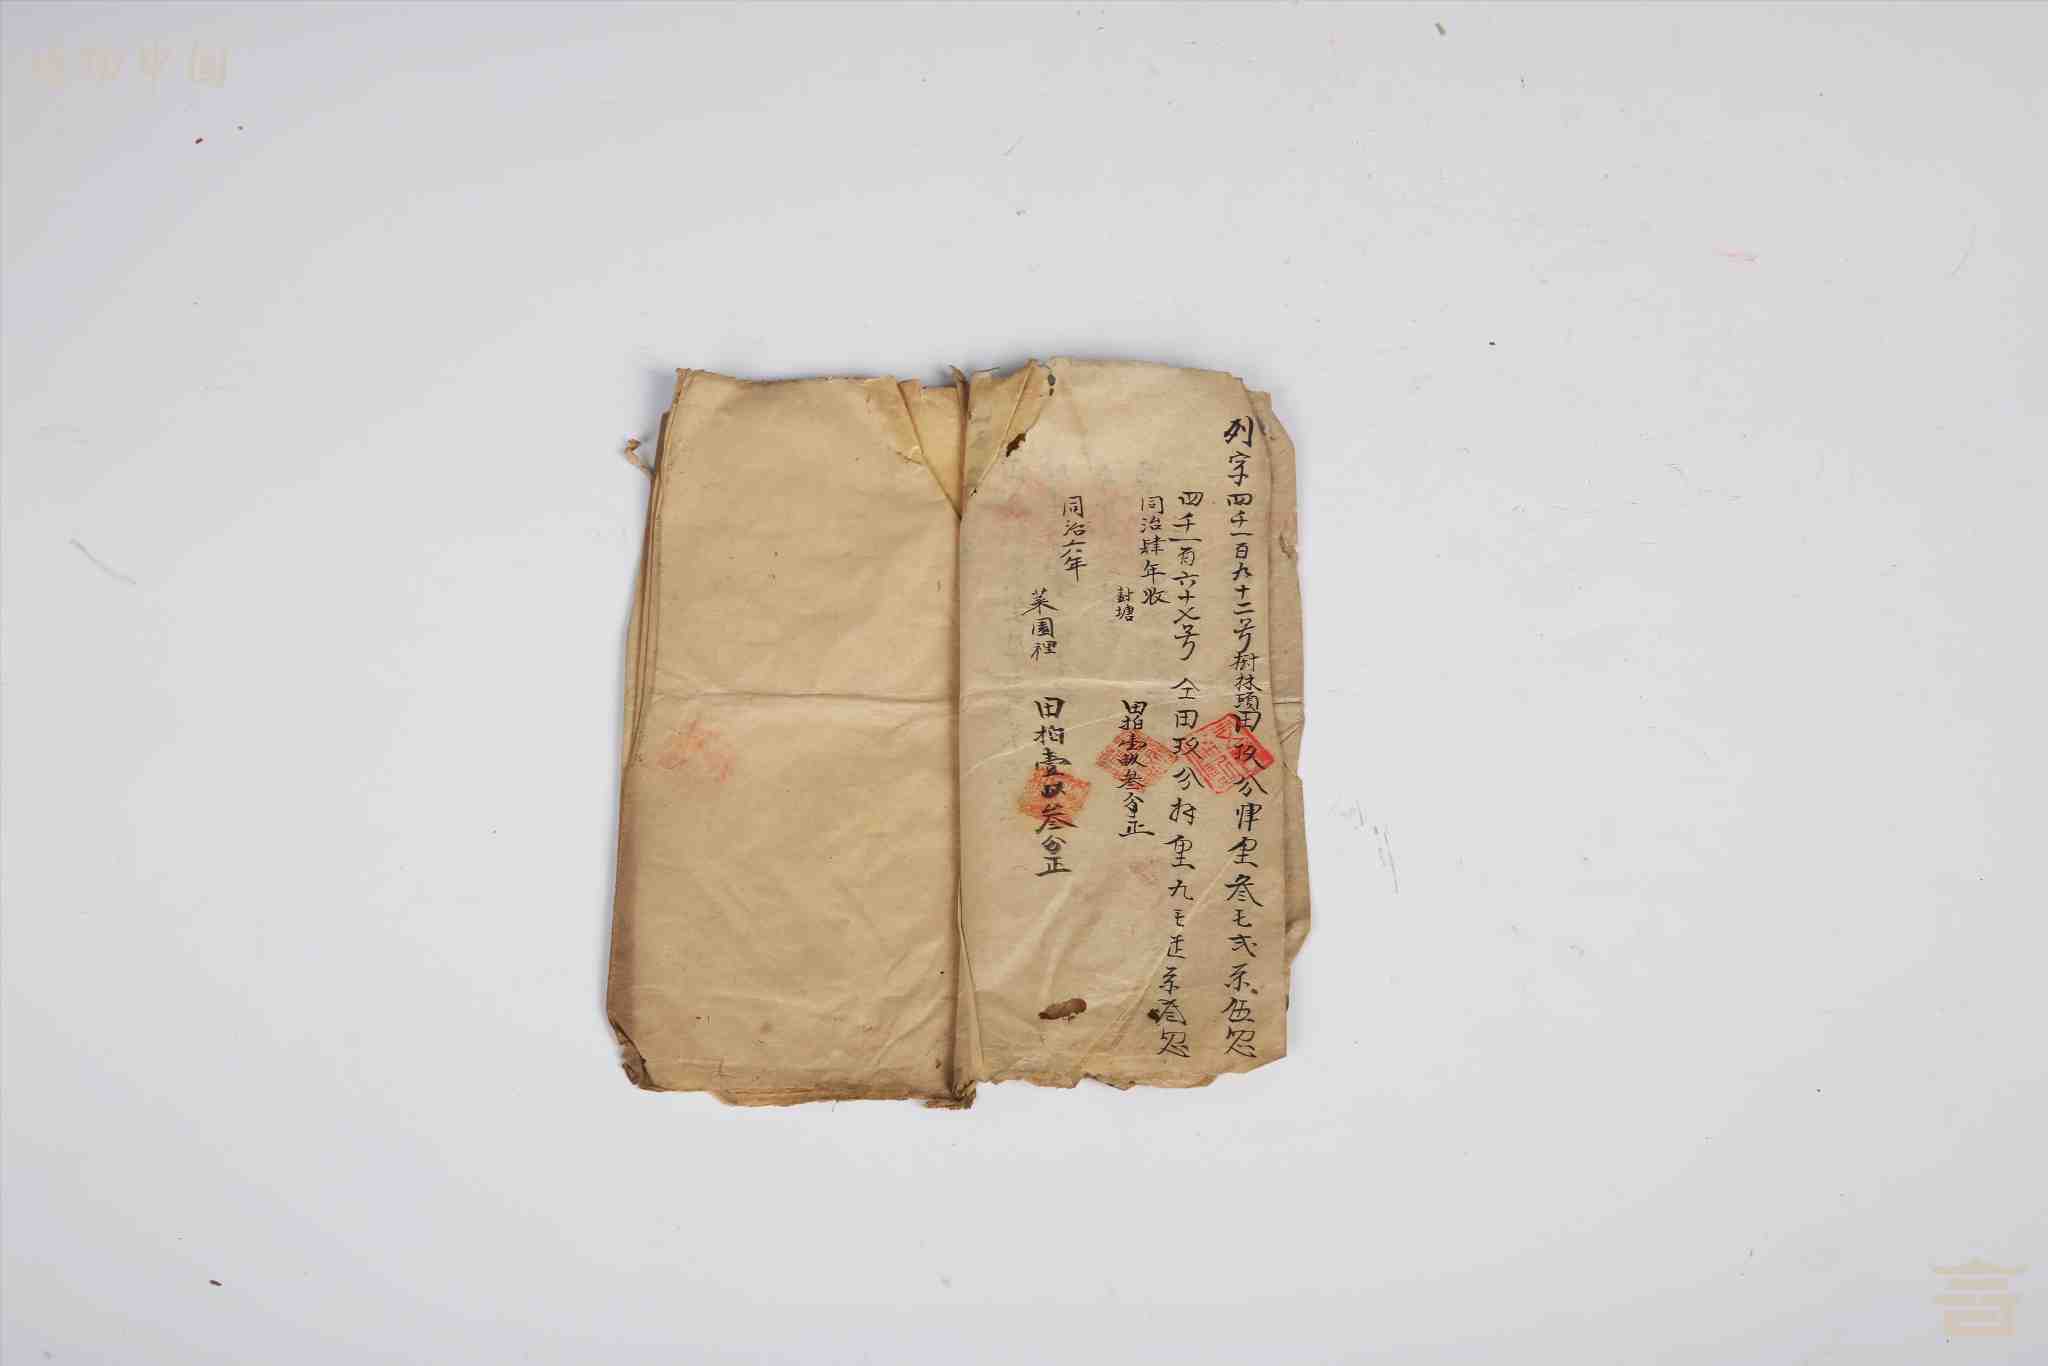 列字四千一百九十二号樹林頭田玖分肆里叁毛弍糸伍忽
四千一百六十七号仝田玖分捌里九毛柒糸叁忽
同治肆年收
封塘 田拾壹畝叁分正
同治六年
菜園裡 田拾壹畝叁分正